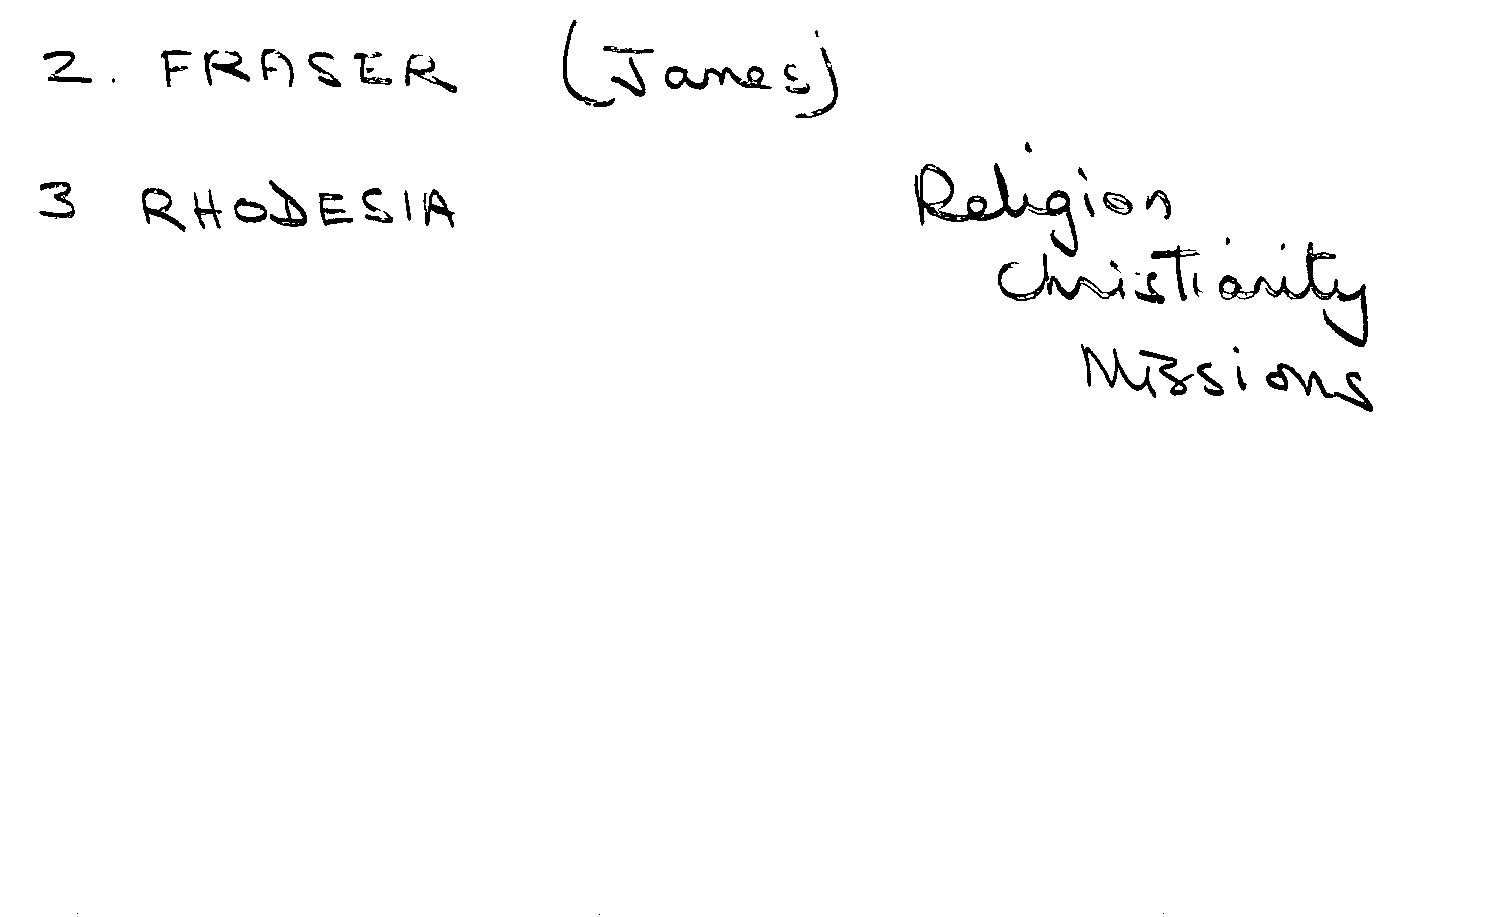 2. FRASER (James)
3 RHODESIA Religion
Christianity
Missions